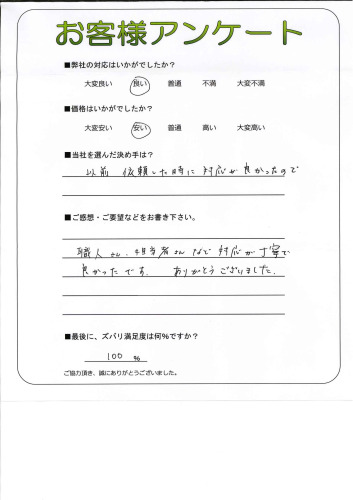 お客様アンケート
■弊社の対応はいかがでしたか？
大変良い 良い 普通 不満 大変不満
■価格はいかがでしたか？
大変安い 安い 普通 高い 大変高い
■当社を選んだ決め手は？
以前 依頼した時に 対応が良かったので
■ご感想・ご要望などをお書き下さい。
職人さん、担当者さんなど 対応が丁寧で
良かったです。 ありがとうございました。
■最後に、ズバリ満足度は何％ですか？
100 %
ご協力頂き、誠にありがとうございました。